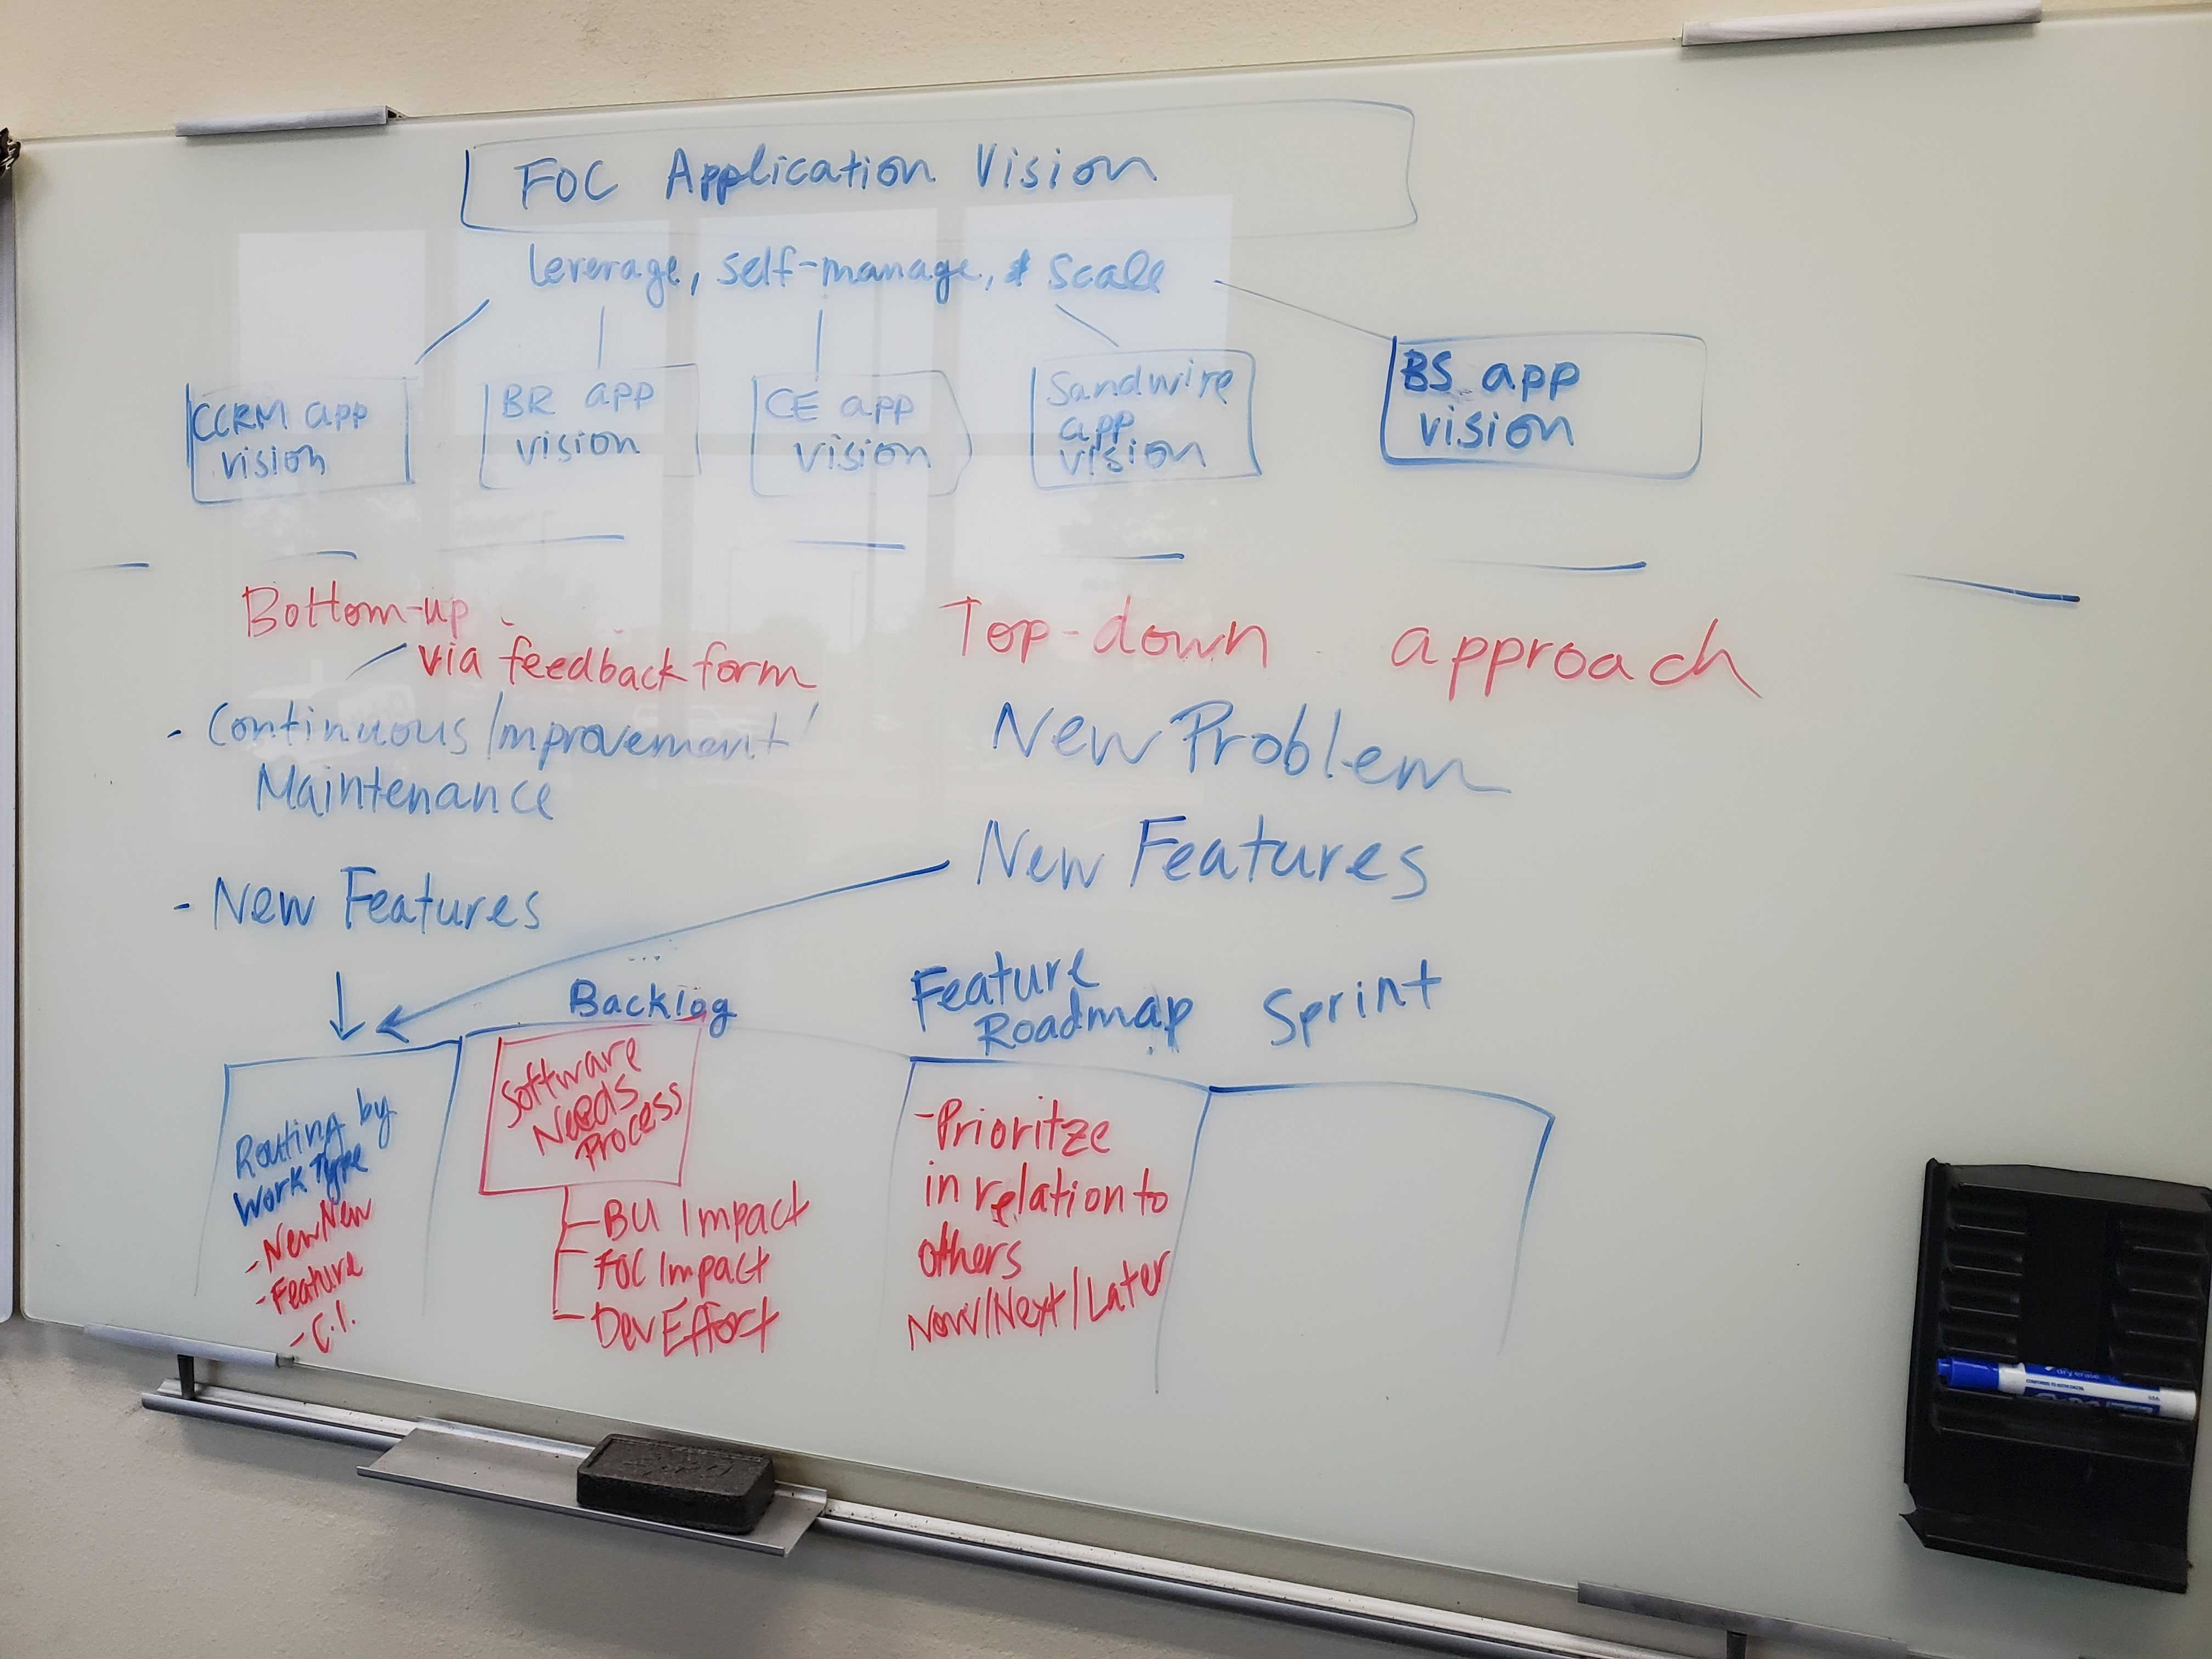 FOC Application Vision
leverage, self-manage, & scale
CCRM app
vision
BR app
vision
CE app
vision
Sandwire
app
vision
BS app
vision
Bottom-up
via feedback form
- Continuous Improvement/
Maintenance
- New Features
Top-down approach
New Problem
New Features
Backlog
Feature
Roadmap
Sprint
Routing by
Work Type
- New/New
- Feature
- C.I.
Software
Needs
Process
- BU Impact
- FOC Impact
- Dev Effort
- Prioritze
in relation to
others
Now/Next/Later
dry erase